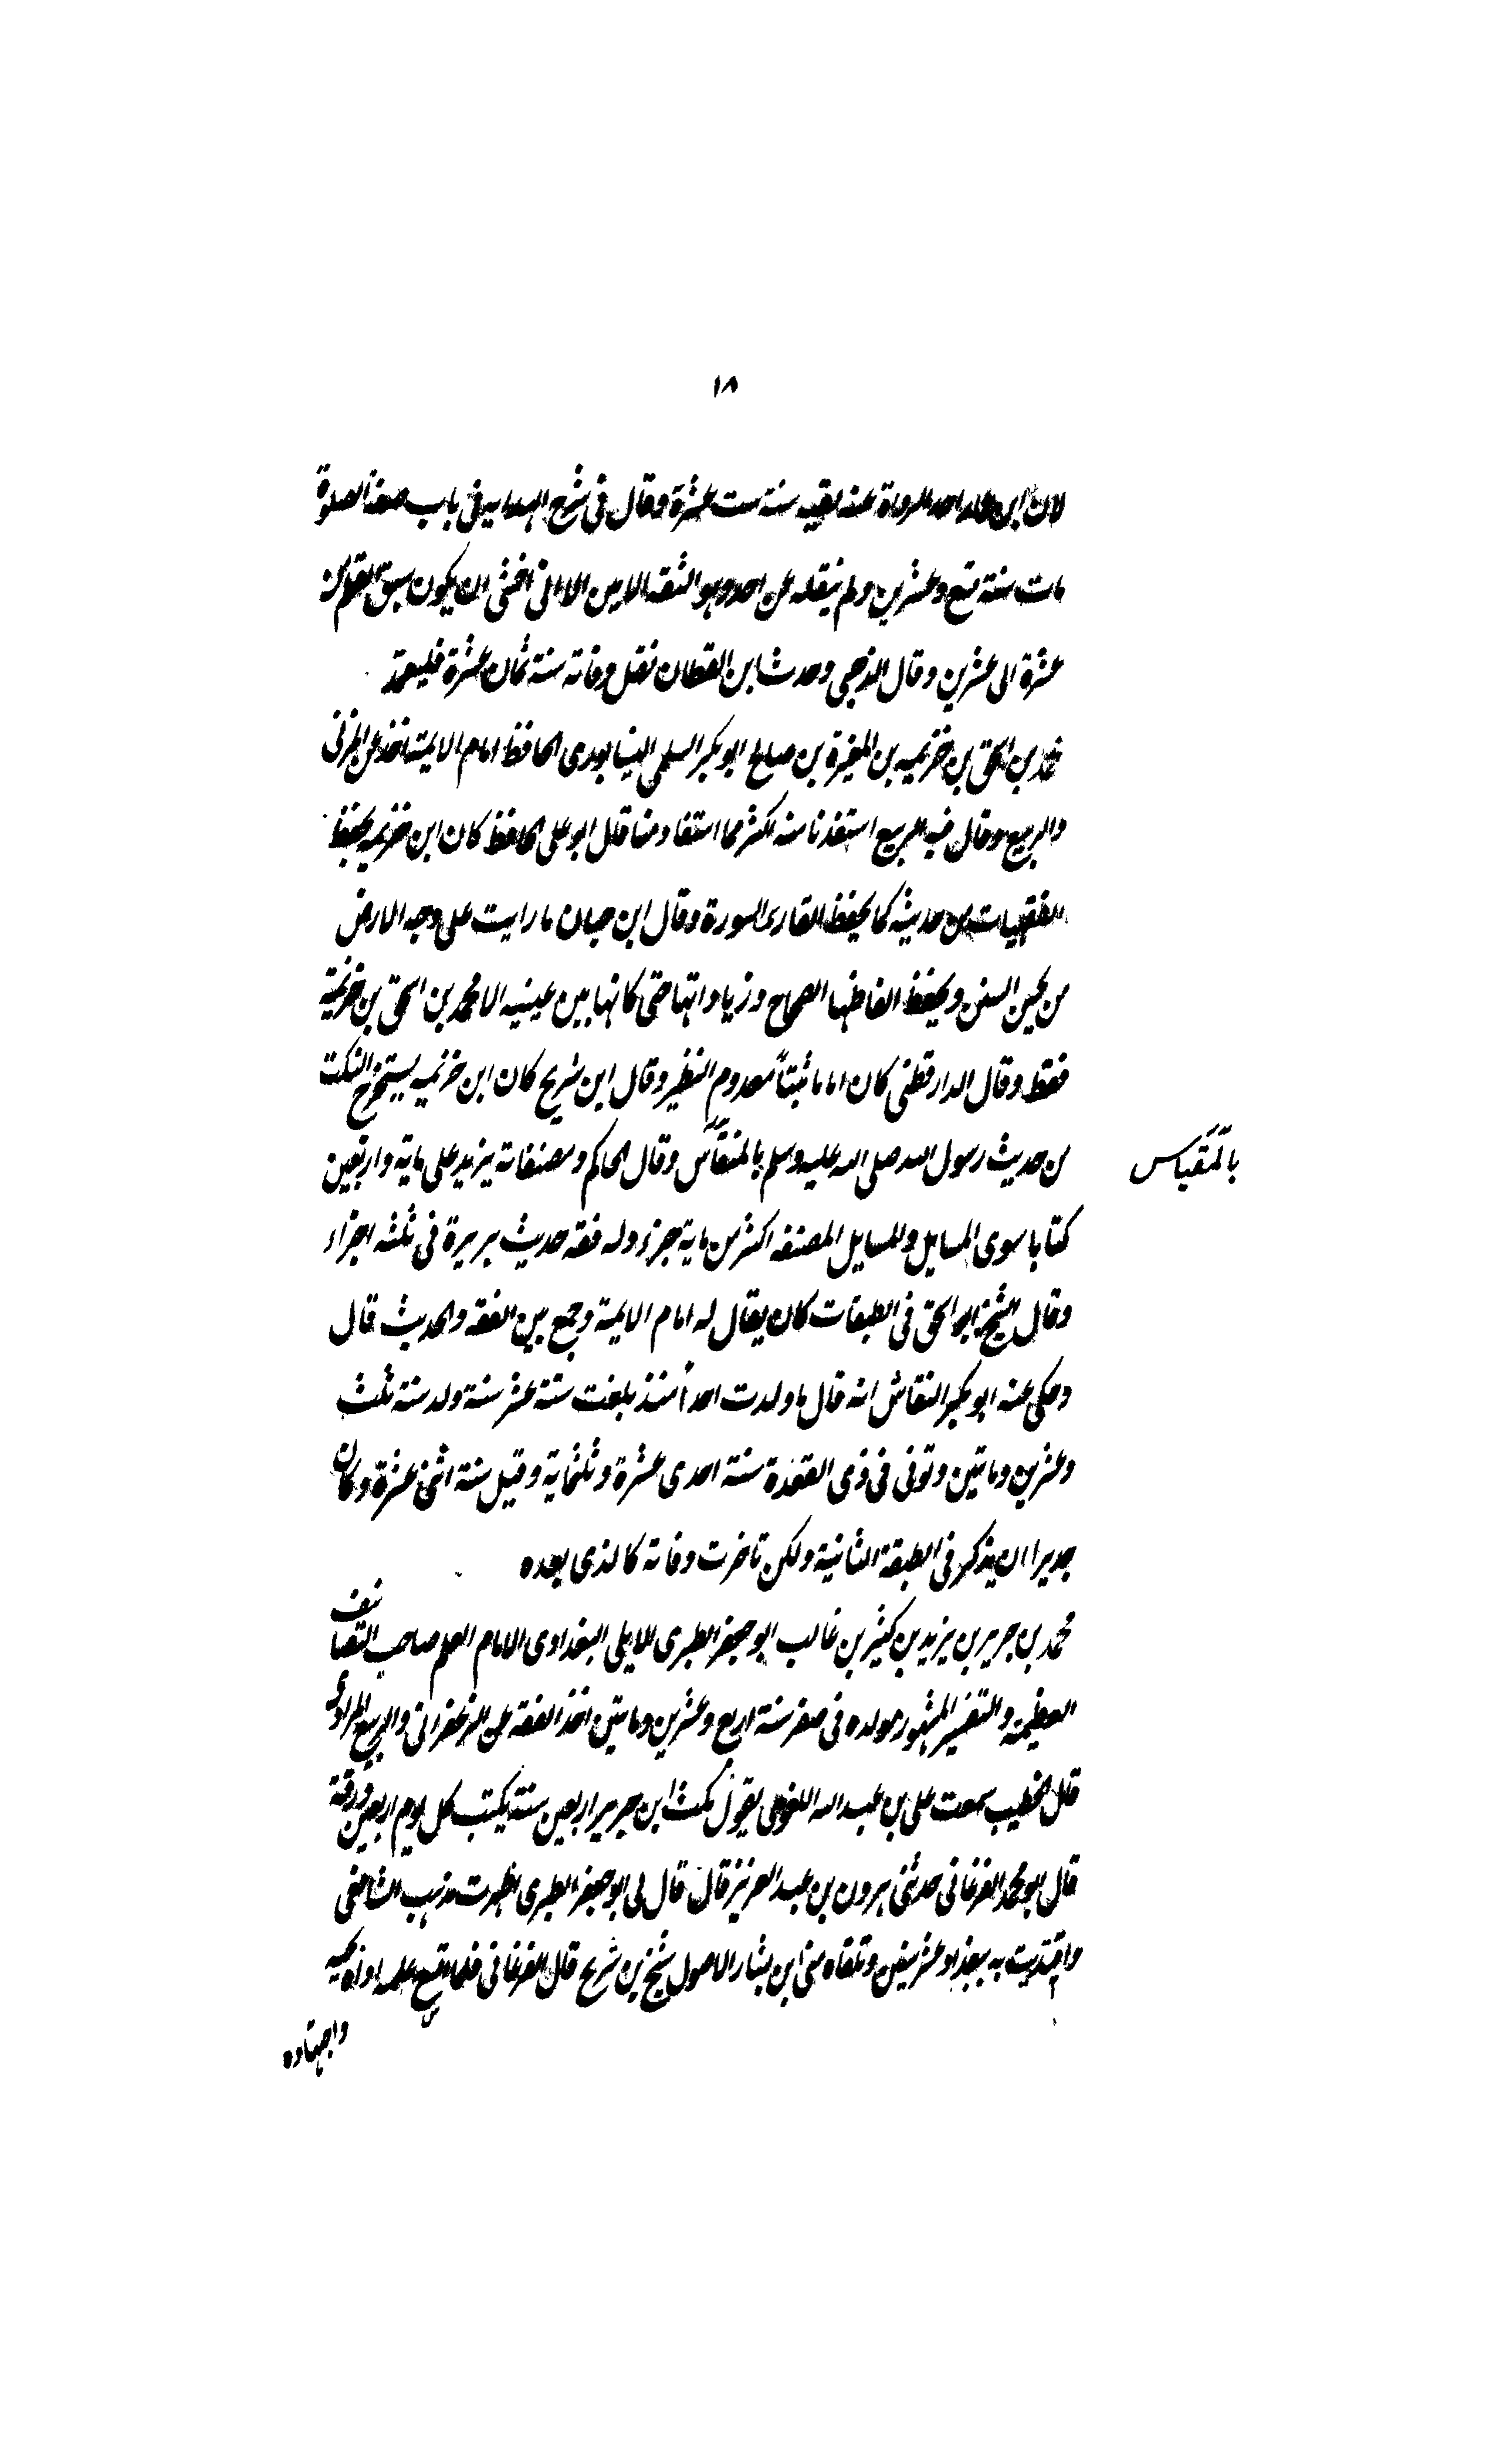 ١٨
لان ابن احد الرواة عنه لقيه سنة ست عشرة وقال في شرح الهداية في باب صفة الصلوة
مات سنة تسع وعشرين ولم ينقله عن احد وهو الثقة الامين الا اني اخشى ان يكون سبق القلم من
عشرة الى عشرين وقال الذهبي وحدث ابن القطان نقل وفاته سنة ثمان عشرة فليعتمد
محمد بن اسحق بن خزيمه بن المغيرة بن صالح ابو بكر السلمي النيسابوري الحافظ امام الايمة اخذ عن المزني
والربيع وقال فيه الربيع استفدنا منه اكثر مما استفاد منا قال ابو علي الحافظ كان ابن خزيمه يحفظ
الفقهيات من حديثه كما يحفظ القارى السورة وقال ابن حبان ما رايت على وجه الارض
من يحسن السنن ويحفظ الفاظها الصحاح وزياداتها حتى كانها بين عينيه الا محمد بن اسحق بن خزيمة
فقط وقال الدارقطني كان اماما ثبتاً معدوم النظير وقال ابن شريح كان ابن خزيمه يستخرج النكت
من حديث رسول الله صلى الله عليه وسلم بالمنقاس وقال الحاكم ومصنفاته يزيد على ماية واربعين
بالمقياس
كتابا سوى المسايل والمسايل المصنفه اكثر من ماية جزء وله فقه حديث بريرة في ثلثه اجزاء
وقال الشيخ ابو اسحق في الطبقات كان يقال له امام الايمة وجمع بين الفقه والحديث قال
وحكى عنه ابو بكر النقاش انه قال ما ولدت احداً منذ بلغت ستة عشر سنة ولد سنة ثلث
وعشرين وماتين وتوفى في ذى القعدة سنة احدى عشرة وثلثماية وقيل سنة اثنى عشرة وكان
جديرا ان يذكر في الطبقة الثانية ولكن تاخرت وفاته كالذى بعده
محمد بن جرير بن يزيد بن كثير بن غالب ابو جعفر الطبرى الاملي البغدادى الامام العلم صاحب التصانيف
العظيمة والتفسير المشهور مولده في صفر سنة اربع وعشرين وماتين اخذ الفقه عن الزعفراني والربيع المرادى
قال الخطيب سمعت على بن عبد الله اللغوى يقول مكث ابن جرير اربعين سنة يكتب كل يوم اربعين ورقة
قال ابو محمد الفرغاني حدثني هرون بن عبد العزيز قال قال لي ابو جعفر الطبرى اظهرت مذهب الشافعى
واقتديت به ببغداد عشر سنين وتلقاه منى ابن بشار الاحول شيخ بن شريح قال الفرغاني فلما اتسع علمه اداه بحثه
واجتهاده